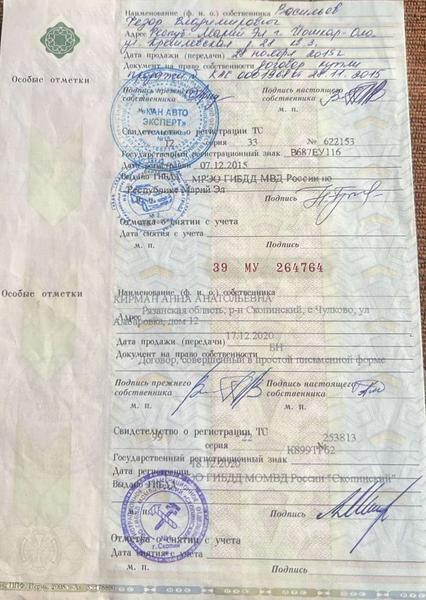 Наименование (ф. и. о.) собственника Васильев
Федор Владимирович
Адрес Респ. Марий Эл г. Йошкар-Ола
ул. Кремлевская
Дата продажи (передачи) 28 ноября 2015г
Документ на право собственности договор купли
продажи 28.11.2015
Особые отметки
Подпись прежнего собственника
Подпись настоящего собственника
«КАН АВТО
ЭКСПЕРТ»
Свидетельство о регистрации ТС
12 серия 33 № 622153
Государственный регистрационный знак В687ЕУ116
Дата регистрации 07.12.2015
Выдано ГИБДД МРЭО ГИБДД МВД России по
Республике Марий Эл
М. П. Подпись
Отметка о снятии с учета
Дата снятия с учета
м. п. Подпись
39 МУ 264764
Особые отметки
Наименование (ф. и. о.) собственника
КИРМАН АННА АНАТОЛЬЕВНА
Адрес Рязанская область, р-н Скопинский, с Чулково, ул
дом 12
Дата продажи (передачи) 17.12.2020
Документ на право собственности БН
Договор, совершенный в простой письменной форме
Подпись прежнего собственника
Подпись настоящего собственника
м. п. м. п.
Свидетельство о регистрации ТС
99 серия 22 № 253813
Государственный регистрационный знак К899ТТ62
Дата регистрации 18.12.2020
Выдано ГИБДД РЭО ГИБДД МОМВД России "Скопинский"
г. Скопин
м. п. Подпись
Отметка о снятии с учета
Дата снятия с учета
м. п. Подпись